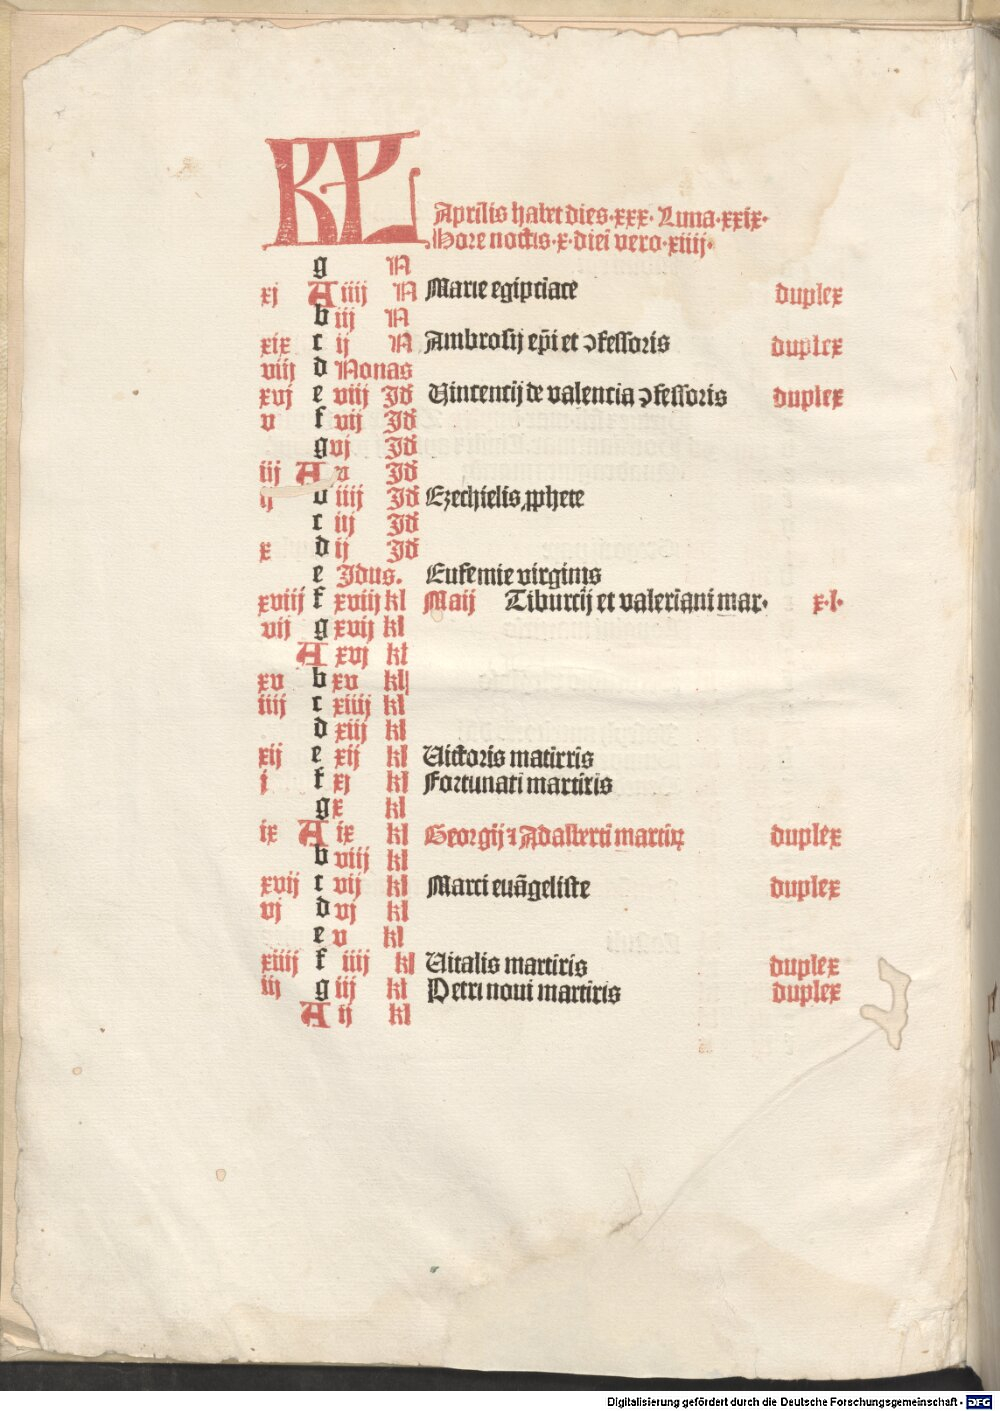 KL
Aprilis habet dies·xxx· Luna·xxix·
Hore noctis·x·diei vero·xiiij·
g N
xj A iiij N Marie egiptiace duplex
b iij N
xix c ij N Ambrosij ep̄i et ↄfessoris duplex
viij d Nonas
xvj e viij Id Vincencij de valencia ↄfessoris duplex
v f vij Id
g vj Id
iij A v Id
ij b iiij Id Ezechielis ꝓphete
c iij Id
x d ij Id
e Idus. Eufemie virginis
xviij f xviij kl Maij Tiburcij et valeriani mar· x·l·
vij g xvij kl
A xvj kl
xv b xv kl
iiij c xiiij kl
d xiij kl
xij e xij kl Victoris matirris
j f xj kl Fortunati martiris
g x kl
ix A ix kl Georgij ⁊ Adalberti martiꝝ duplex
b viij kl
xvij c vij kl Marci euāgeliste duplex
vj d vj kl
e v kl
xiiij f iiij kl Vitalis martiris duplex
iij g iij kl Petri noui martiris duplex
A ij kl
Digitalisierung gefördert durch die Deutsche Forschungsgemeinschaft - DFG